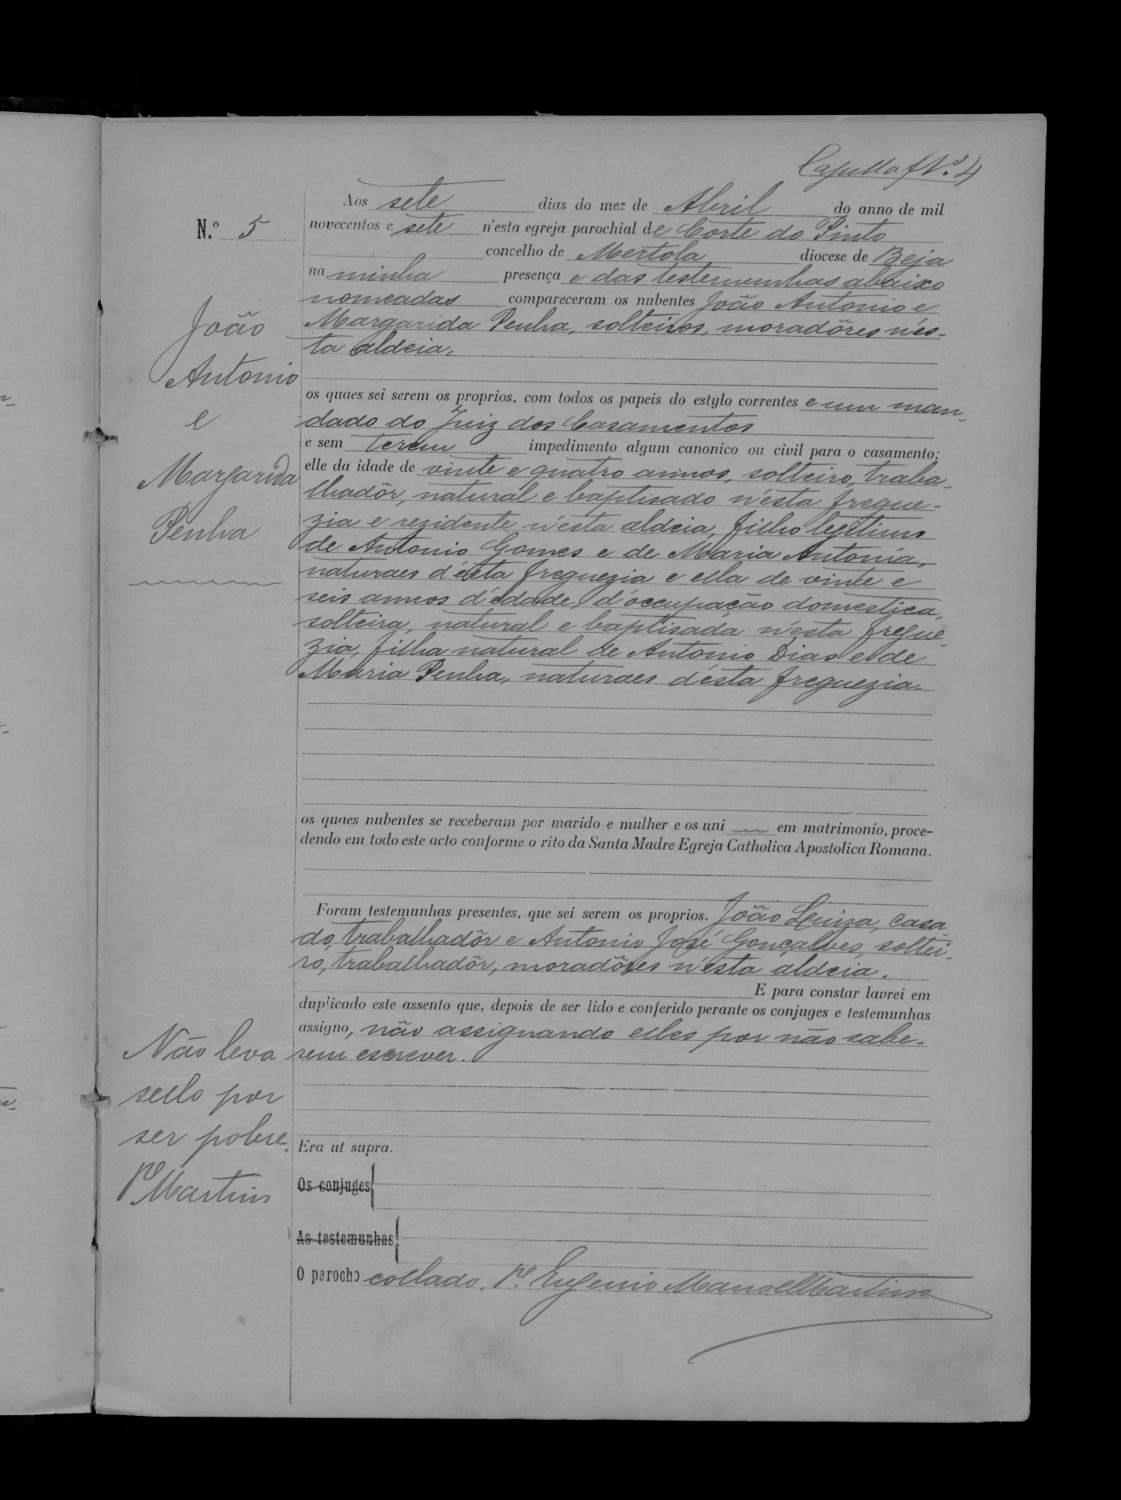 Capella f Nº. 4
Aos sete dias do mez de Abril do anno de mil
N.º 5
novecentos e sete n'esta egreja parochial de Corte do Pinto
concelho de Mertola diocese de Beja
na minha presença e das testemunhas abaixo
nomeadas compareceram os nubentes João Antonio e
Margarida Penha, solteiros, moradôres n'es-
ta aldeia.
os quaes sei serem os proprios, com todos os papeis do estylo correntes e um man-
dado do Juiz dos Casamentos
e sem terem impedimento algum canonico ou civil para o casamento;
elle da idade de vinte e quatro annos, solteiro, traba-
lhadôr, natural e baptisado n'esta fregue-
zia e rezidente n'esta aldeia, filho legitimo
de Antonio Gomes e de Maria Antonia,
naturaes d'ésta freguezia e ella de vinte e
seis annos d'edade, d'occupação domestica,
solteira, natural e baptisada n'esta fregue-
zia, filha natural de Antonio Dias e de
Maria Penha, naturaes d'ésta freguezia.
João
Antonio
e
Margarida
Penha
os quaes nubentes se receberam por marido e mulher e os uni em matrimonio, proce-
dendo em todo este acto conforme o rito da Santa Madre Egreja Catholica Apostolica Romana.
Foram testemunhas presentes, que sei serem os proprios. João Luiza, casa
do, trabalhadôr e Antonio José Gonçalves, soltei-
ro, trabalhadôr, moradôres n'esta aldeia.
E para constar lavrei em
duplicado este assento que, depois de ser lido e conferido perante os conjuges e testemunhas
assigno, não assignando elles por não sabe-
rem escrever.
Não leva
sello por
ser pobre.
Pe Martins
Era ut supra.
Os conjuges
As testemunhas
O parocho collado. Pe. Eugenio Manoel Martins